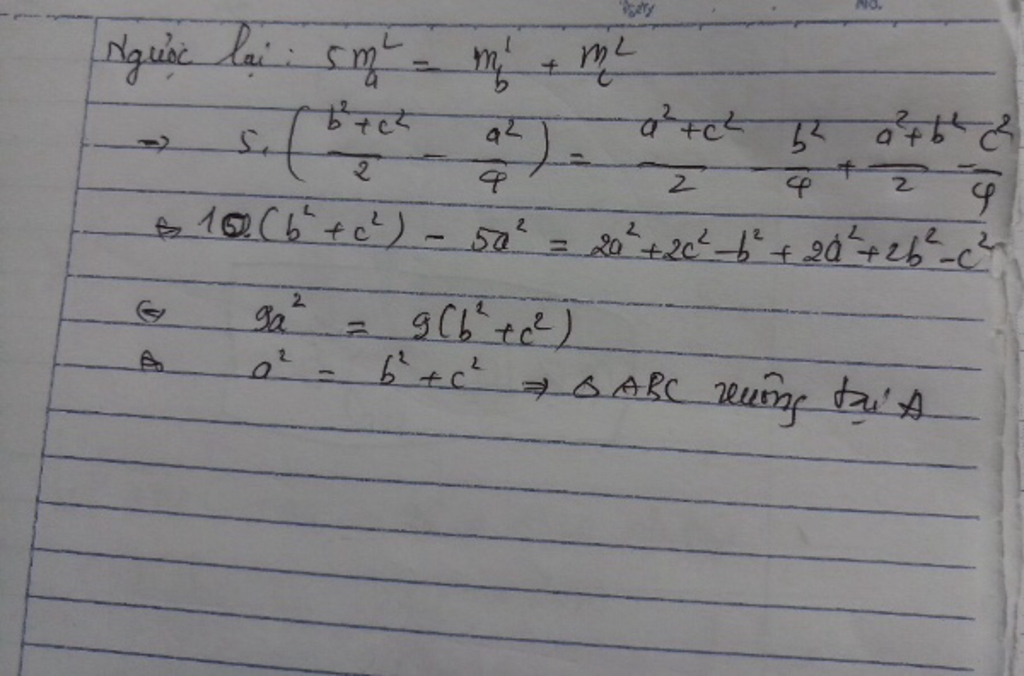 Ngược lại: 5m_a^2 = m_b^2 + m_c^2
→ 5.(\frac{b^2+c^2}{2} - \frac{a^2}{4}) = \frac{a^2+c^2}{2} - \frac{b^2}{4} + \frac{a^2+b^2}{2} - \frac{c^2}{4}
⇔ 10(b^2 + c^2) - 5a^2 = 2a^2 + 2c^2 - b^2 + 2a^2 + 2b^2 - c^2
⇔ 9a^2 = 9(b^2 + c^2)
⇔ a^2 = b^2 + c^2 ⇒ Δ ABC vuông tại A